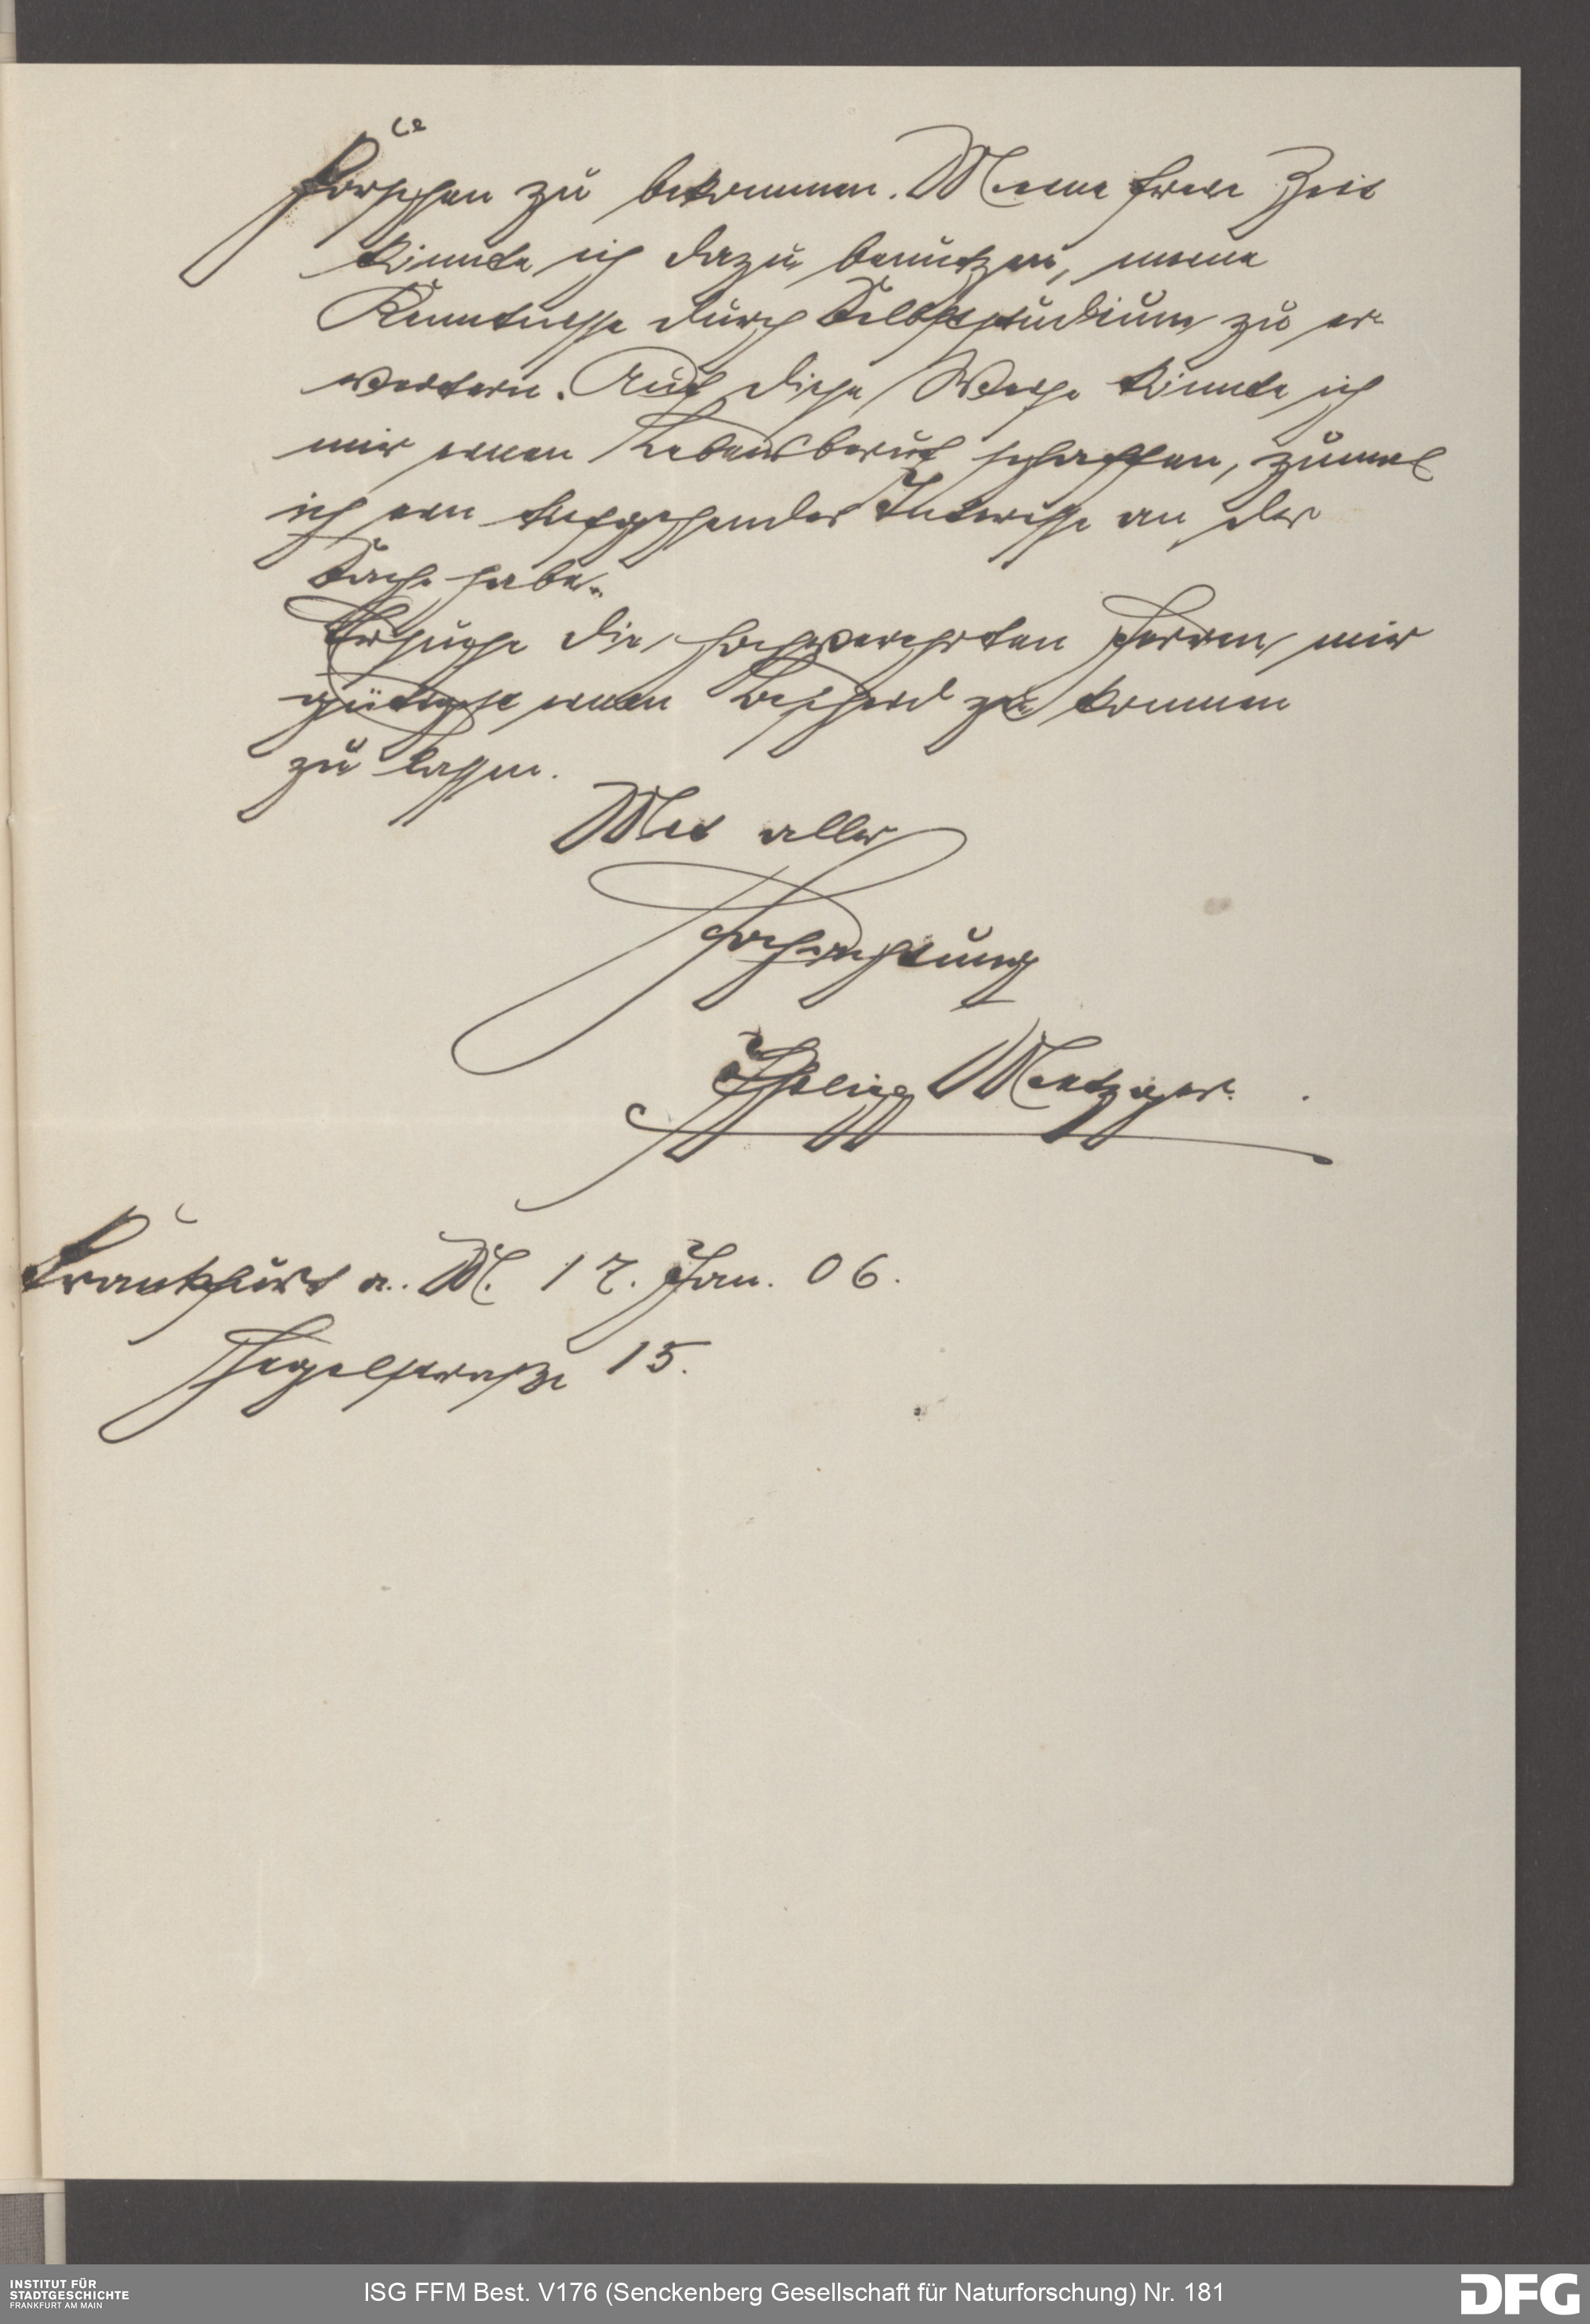 Forschen zu bekommen. Meine freie Zeit
könnte ich dazu benützen, meine
Kenntnisse durch Selbststudium zu er-
weitern. Auf diese Weise könnte ich
mir einen Lebensberuf schaffen, zumal
ich ein tiefgehendes Interesse an der
Sache habe.
Ersuche die hochverehrten Herren, mir
gütigst einen Bescheid zu kommen
zu lassen.
Mit aller
Hochachtung
Philipp Metzger.
Frankfurt a. M. 17. Jan. 06.
Hegelstraße 15.
INSTITUT FÜR
STADTGESCHICHTE
FRANKFURT AM MAIN
ISG FFM Best. V176 (Senckenberg Gesellschaft für Naturforschung) Nr. 181
DFG